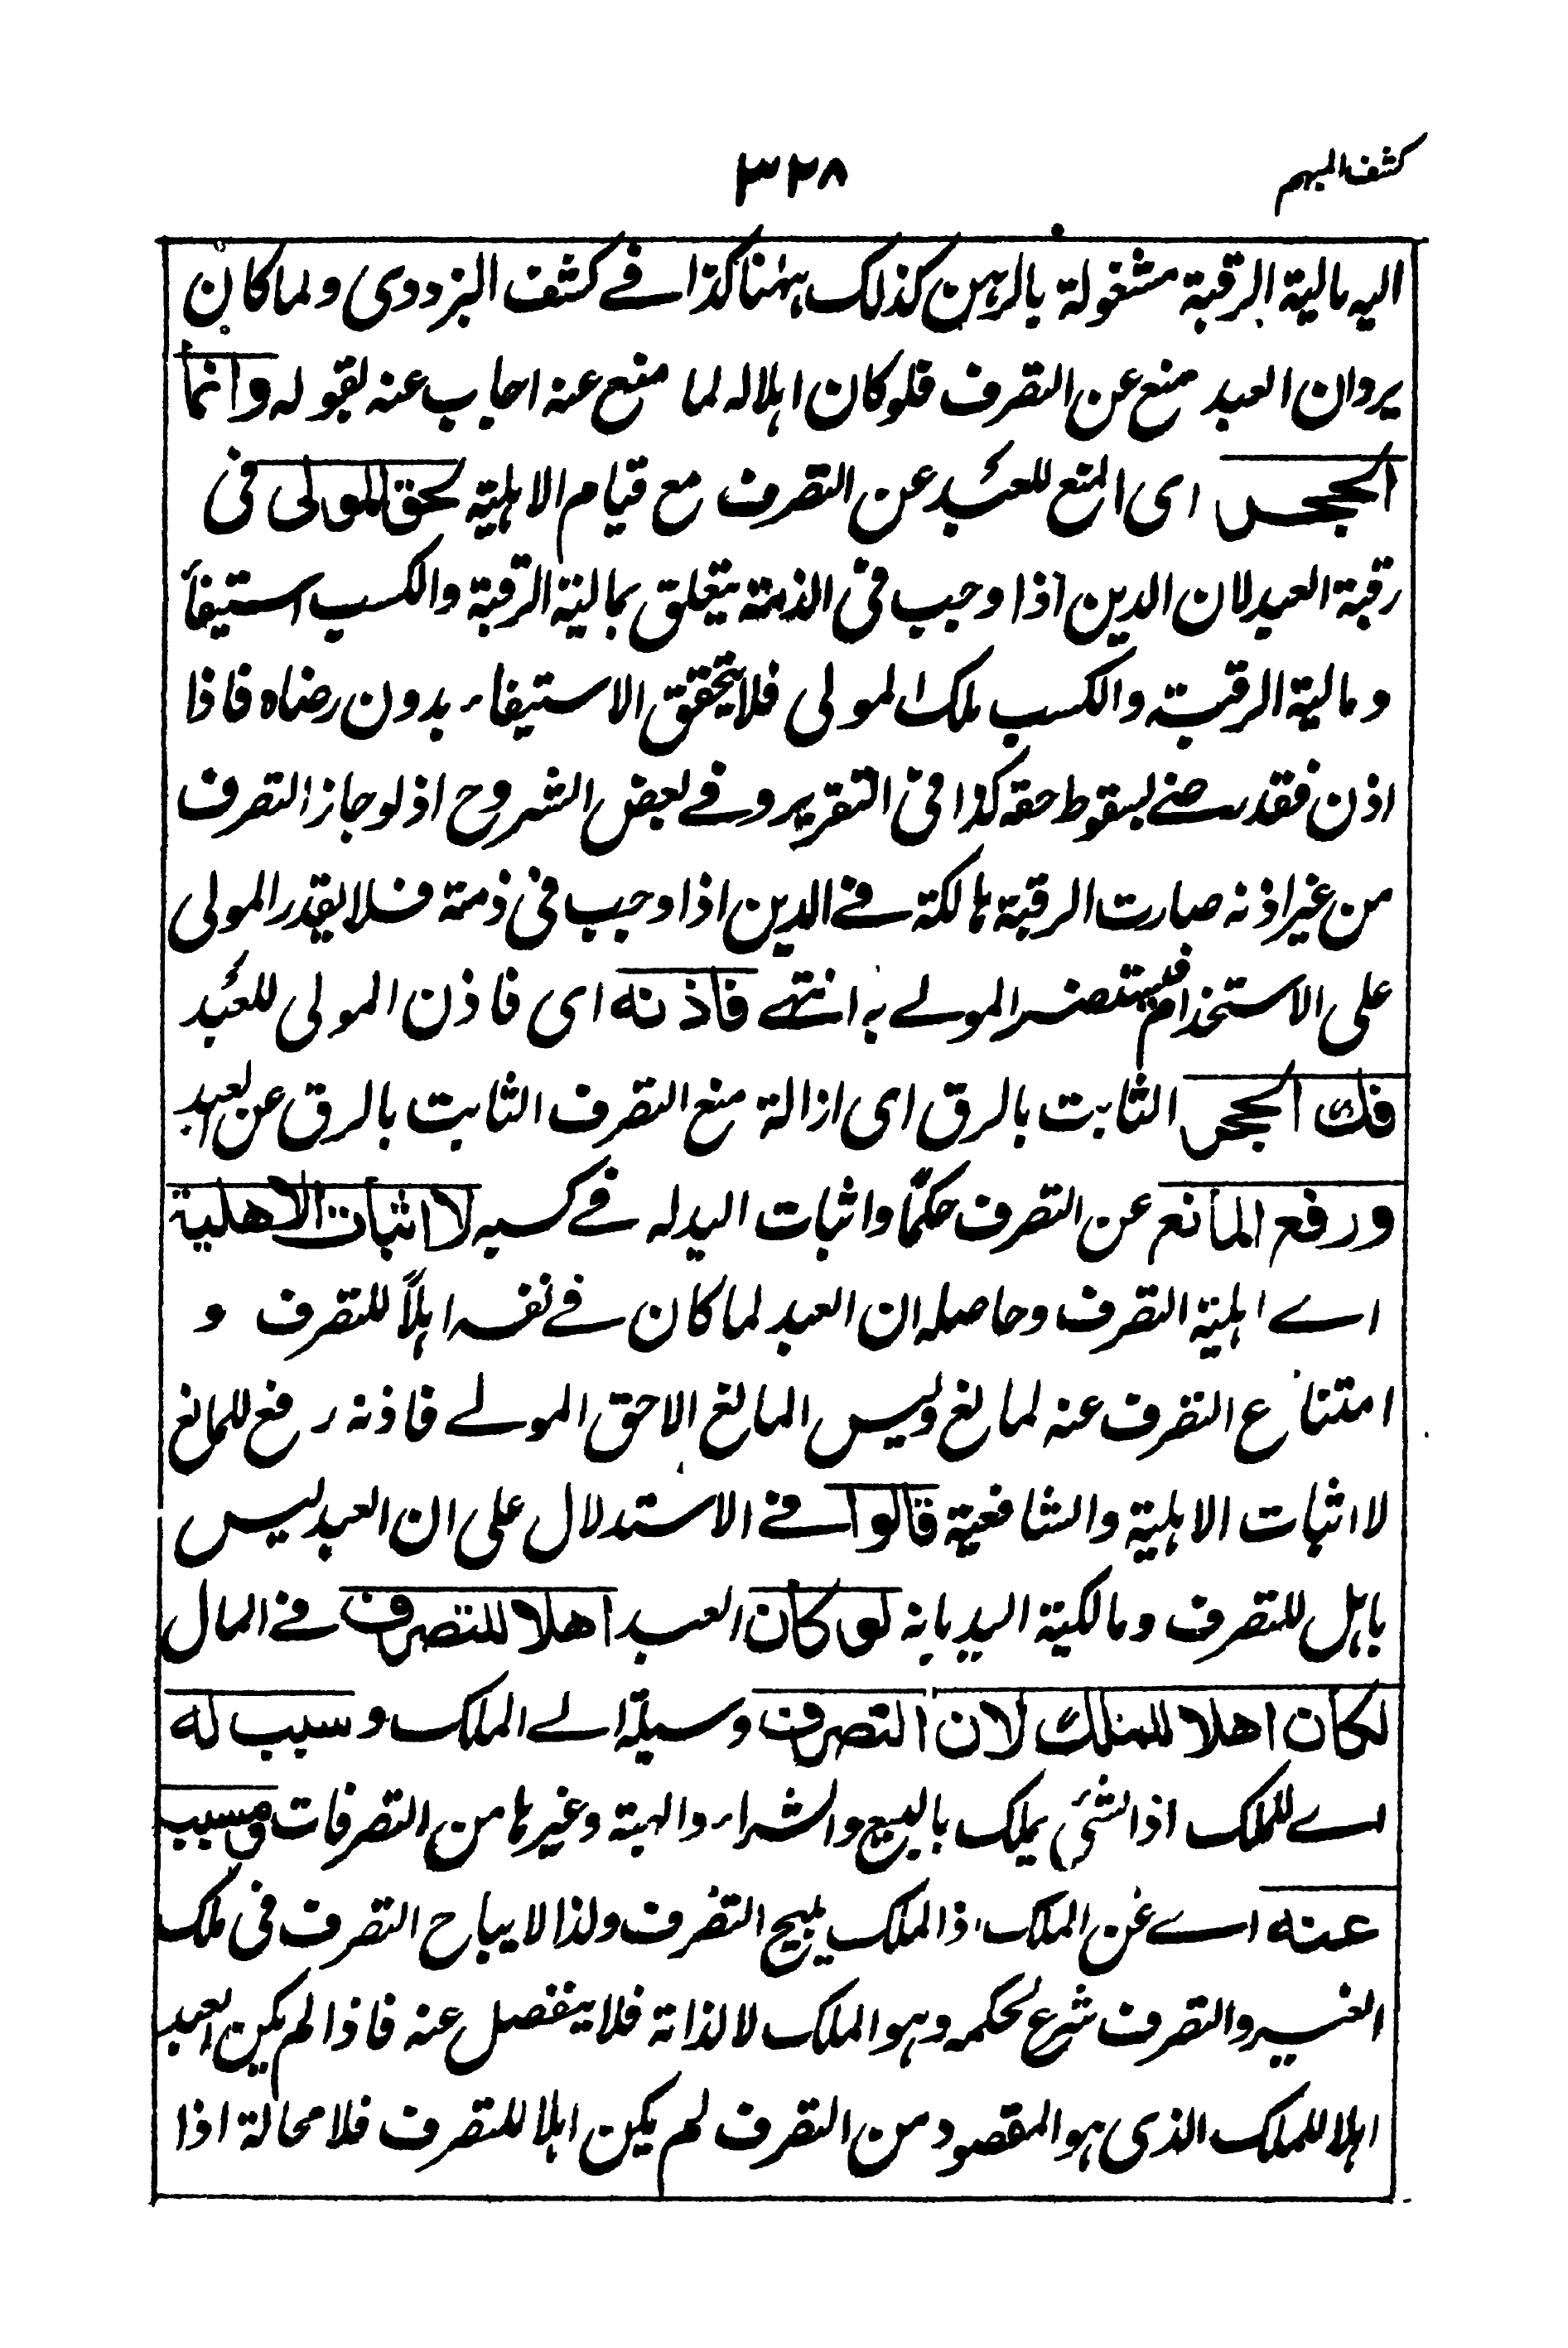 كشف المبهم
٣٢٨
اليه مالية الرقبة مشغولة بالرهن كذلك ههنا كذا في كشف البزدوى ولما كان
يردان العبد منع عن التصرف فلو كان اهلا له لما منع عنه اجاب عنه بقوله وانما
الحجر اى المنع للعبد عن التصرف مع قيام الاهلية لحق المولى فى
رقبة العبد لان الدين اذا وجب فى الذمة يتعلق بمالية الرقبة والكسب استيفاء
ومالية الرقبة والكسب ملك المولى فلا يتحقق الاستيفاء بدون رضاه فاذا
اذن فقد رضے بسقوط حقه كذا فى التقرير وفے بعض الشروح اذ لو جاز التصرف
من غير اذنه صارت الرقبة هالكة فے الدين اذا وجب فى ذمة فلا يقدر المولى
على الاستخدام فيتضرر المولے به انتهے فاذنه اى فاذن المولى للعبد
فك الحجر الثابت بالرق اى ازالة منع التصرف الثابت بالرق عن العبد
ورفع المانع عن التصرف حكمًا واثبات اليد له فے كسبه لا اثبات الاهلية
اے اهلية التصرف وحاصله ان العبد لما كان فے نفسه اهلاً للتصرف و
امتناع التصرف عنه لمانع وليس المانع الا حق المولے فاذنه رفع للمانع
لا اثبات الاهلية والشافعية قالوا فے الاستدلال على ان العبد ليس
باهل للتصرف ومالكية اليد بانه لو كان العبد اهلا للتصرف فے المال
لكان اهلا للملك لان التصرف وسيلة الے الملك وسبب له
اے للملك اذ الشئ يملك بالبيع والشراء والهبة وغيرها من التصرفات ومسبب
عنه اے عن الملك اذ الملك يبيح التصرف ولذا لا يباح التصرف فى ملك
الغير والتصرف شرع لحكمه وهو الملك لا لذاته فلا ينفصل عنه فاذا لم يكن العبد
اهلا للملك الذى هو المقصود من التصرف لم يكن اهلا للتصرف فلا محالة اذا